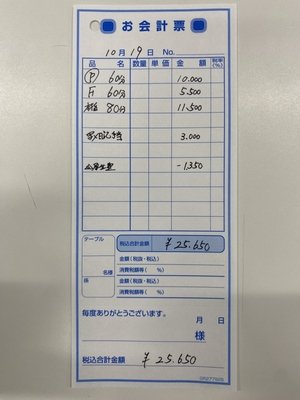 お会計票
10月19日 No.
品名 数量 単価 金額 税率(%)
Ⓟ 60分 10.000
F 60分 5.500
80分 11.500
3.000
-1.350
テーブル 税込合計金額 ¥25.650
金額(税抜・税込)
名様 消費税額等( %)
係 金額(税抜・税込)
消費税額等( %)
毎度ありがとうございます。
月 日
様
税込合計金額 ¥25.650